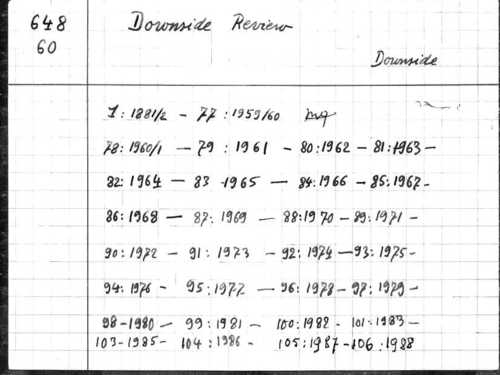 648
60
Downside Review
Downside
1: 1881/2 - 77: 1959/60
78: 1960/1 - 79: 1961 - 80: 1962 - 81: 1963 -
82: 1964 - 83 - 1965 - 84: 1966 - 85: 1967 -
86: 1968 - 87: 1969 - 88: 1970 - 89: 1971 -
90: 1972 - 91: 1973 - 92: 1974 - 93: 1975 -
94: 1976 - 95: 1977 - 96: 1978 - 97: 1979 -
98 - 1980 - 99: 1981 - 100: 1982 - 101: 1983 -
103 - 1985 - 104: 1986 - 105: 1987 - 106: 1988